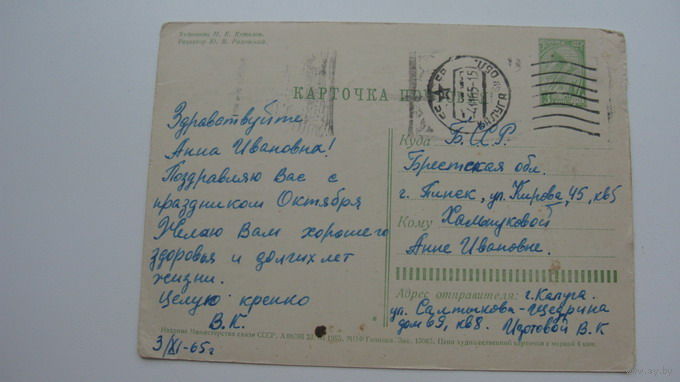 Художник Н. Е. Кутилов.
Редактор Ю. В. Раковский.
КАРТОЧКА
КАЛУГА
Здравствуйте
Анна Ивановна!
Поздравляю Вас с
праздником Октября
Желаю Вам хорошего
здоровья и долгих лет
жизни.
Целую крепко
В.К.
3/XI-65г
Куда Б.С.С.Р.
Брестская обл.
г. Пинск, ул. Кирова, 45, кв5
Кому
Анне Ивановне.
Адрес отправителя: г. Калуга.
ул. Салтыкова-Щедрина
дом 69, кв8. В.К
Издание Министерства связи СССР.
Цена художественной карточки с маркой 4 коп.
www.ay.by